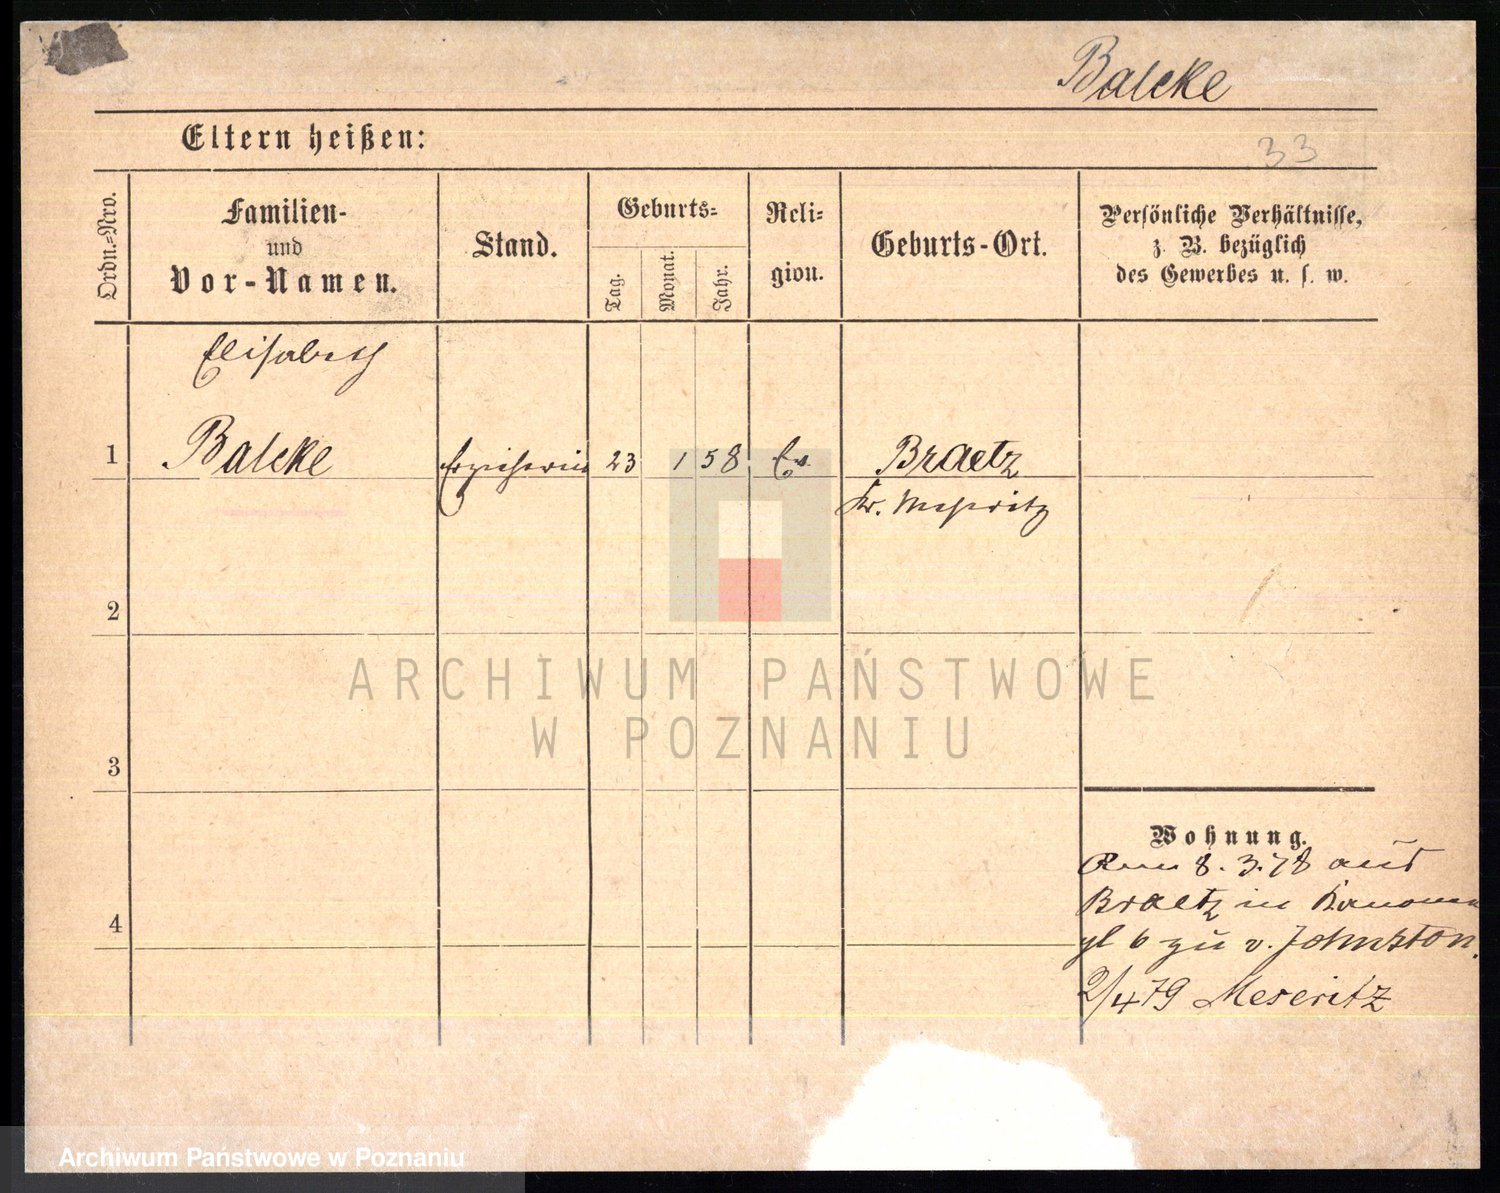 Balcke
Eltern heißen:
33
Ordn.-Nro.
Familien-
und
Vor-Namen.
Stand.
Geburts-
Tag.
Monat.
Jahr.
Reli-
gion.
Geburts-Ort.
Persönliche Verhältnisse,
z. B. bezüglich
des Gewerbes u. s. w.
Elisabeth
1 Balcke Erzieherin 23 1 58 Ev. Braetz
Kr. Meseritz
2
3
4
Wohnung.
8.3.78 aus
Braetz in Kanonen
pl 6 zu v. Johnston.
2/4 79 Meseritz
ARCHIWUM PAŃSTWOWE
W POZNANIU
Archiwum Państwowe w Poznaniu